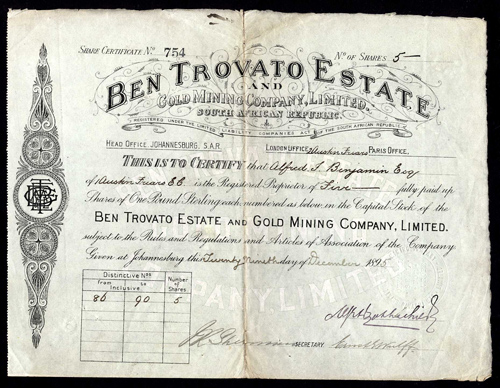 SHARE CERTIFICATE No. 754 No. OF SHARES 5
BEN TROVATO ESTATE
AND
GOLD MINING COMPANY, LIMITED.
SOUTH AFRICAN REPUBLIC.
REGISTERED UNDER THE LIMITED LIABILITY COMPANIES ACT OF THE SOUTH AFRICAN REPUBLIC
HEAD OFFICE JOHANNESBURG, S.A.R. LONDON OFFICE Austin Friars PARIS OFFICE.
THIS IS TO CERTIFY that Alfred J. Benjamin Esq
of Austin Friars E.C. is the Registered Proprietor of Five fully paid up
Shares of One Pound Sterling each numbered as below in the Capital Stock of the
BEN TROVATO ESTATE AND GOLD MINING COMPANY, LIMITED.
subject to the Rules and Regulations and Articles of Association of the Company
Given at Johannesburg this Twenty Nineth day of December 1895
DISTINCTIVE Nos. NUMBER OF SHARES
FROM TO
INCLUSIVE
86 90 5
SECRETARY